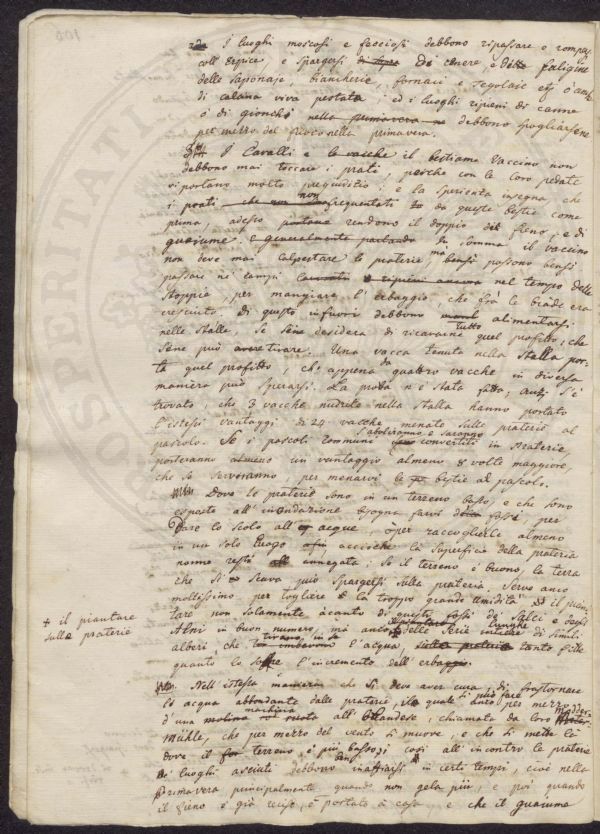 I luoghi moscosi e fecciosi debbono ripassare e rompersi
coll'erpice, e spargersi di cenere e di faligine
delle saponaje, biancherie, fornaci tegolaie etc o anche
di calcina viva pestata; ed i luoghi ripieni di canne
o di gionchi nella primavera ne debbono spogliarsene
per mezzo del fuoco nella primavera.
I Cavalli e le vacche il bestiame Vaccino non
debbono mai toccare i prati, perche con le loro pedate
vi portano molto pregiuditio; e la sperienza insegna, che
i prati che non frequentati da queste bestie come
prima, adesso rendono il doppio di fieno, e di
guaiume. e generalmente parlando In somma il vaccino
non deve mai calpestare le praterie, ma bensi possono bensi
passare ne' campi nel tempo delle
stoppie, per mangiare l'erbaggio, che frà le biade era
cresciuto. di questo in fuori debbono alimentarsi
nelle stalle, se sene desidera di ricavarne tutto quel profitto, che
sene può avere tirare. Una vacca tenuta nella stalla por-
ta quel profitto, che appena da quattro vacche in diversa
maniera può sperarsi. La prova n'è stata fatta, anzi s'è
trovato, che 3 vacche nudrite nella stalla hanno portato
l'istessi vantaggi di 24 vacche menate sulle praterie al
pascolo. Se i pascoli communi s'aboliranno e saranno convertiti in praterie,
porteranno almeno un vantaggio almeno 8 volte maggiore,
che se serveranno per menarvi le bestie al pascolo.
Dove le praterie sono in un terreno basso, e che sono
esposte all'inondazione bisogna farvi fossi, per
dare lo scolo all' acque, o per raccoglierle almeno
in un solo luogo accioche la superficie della prateria
nonne resti annegata: Se il terreno è buono, la terra
che si scava può spargersi sulla prateria. Serve anco
moltissimo per togliere la troppo grande umidità il pian-
tare non solamente acanto di questi fossi di Salci e
Alni in buon numero, mà anco delle serie intiere di simili
+ il piantare
sulle praterie
alberi, che tirano in se l'acqua, sulle praterie tanto fitte
quanto lo soffre l'incremento dell'erbaggio.
Nell'istessa maniera che si deve aver cura, di frastornare
l'acqua abbondante dalle praterie, il quale si può fare per mezzo
d'una machina all'Olandese, chiamata da loro
Mühle, che per mezzo del vento si muove, e che si mette là
dove il terreno è più basso; cosi all'incontro le praterie
di luoghi asciuti debbono inaffiarsi in certi tempi, cioè nella
Primavera principalmente quando non gela più, e poi quando
il fieno è già reciso, è portato a casa, e che il guaiume